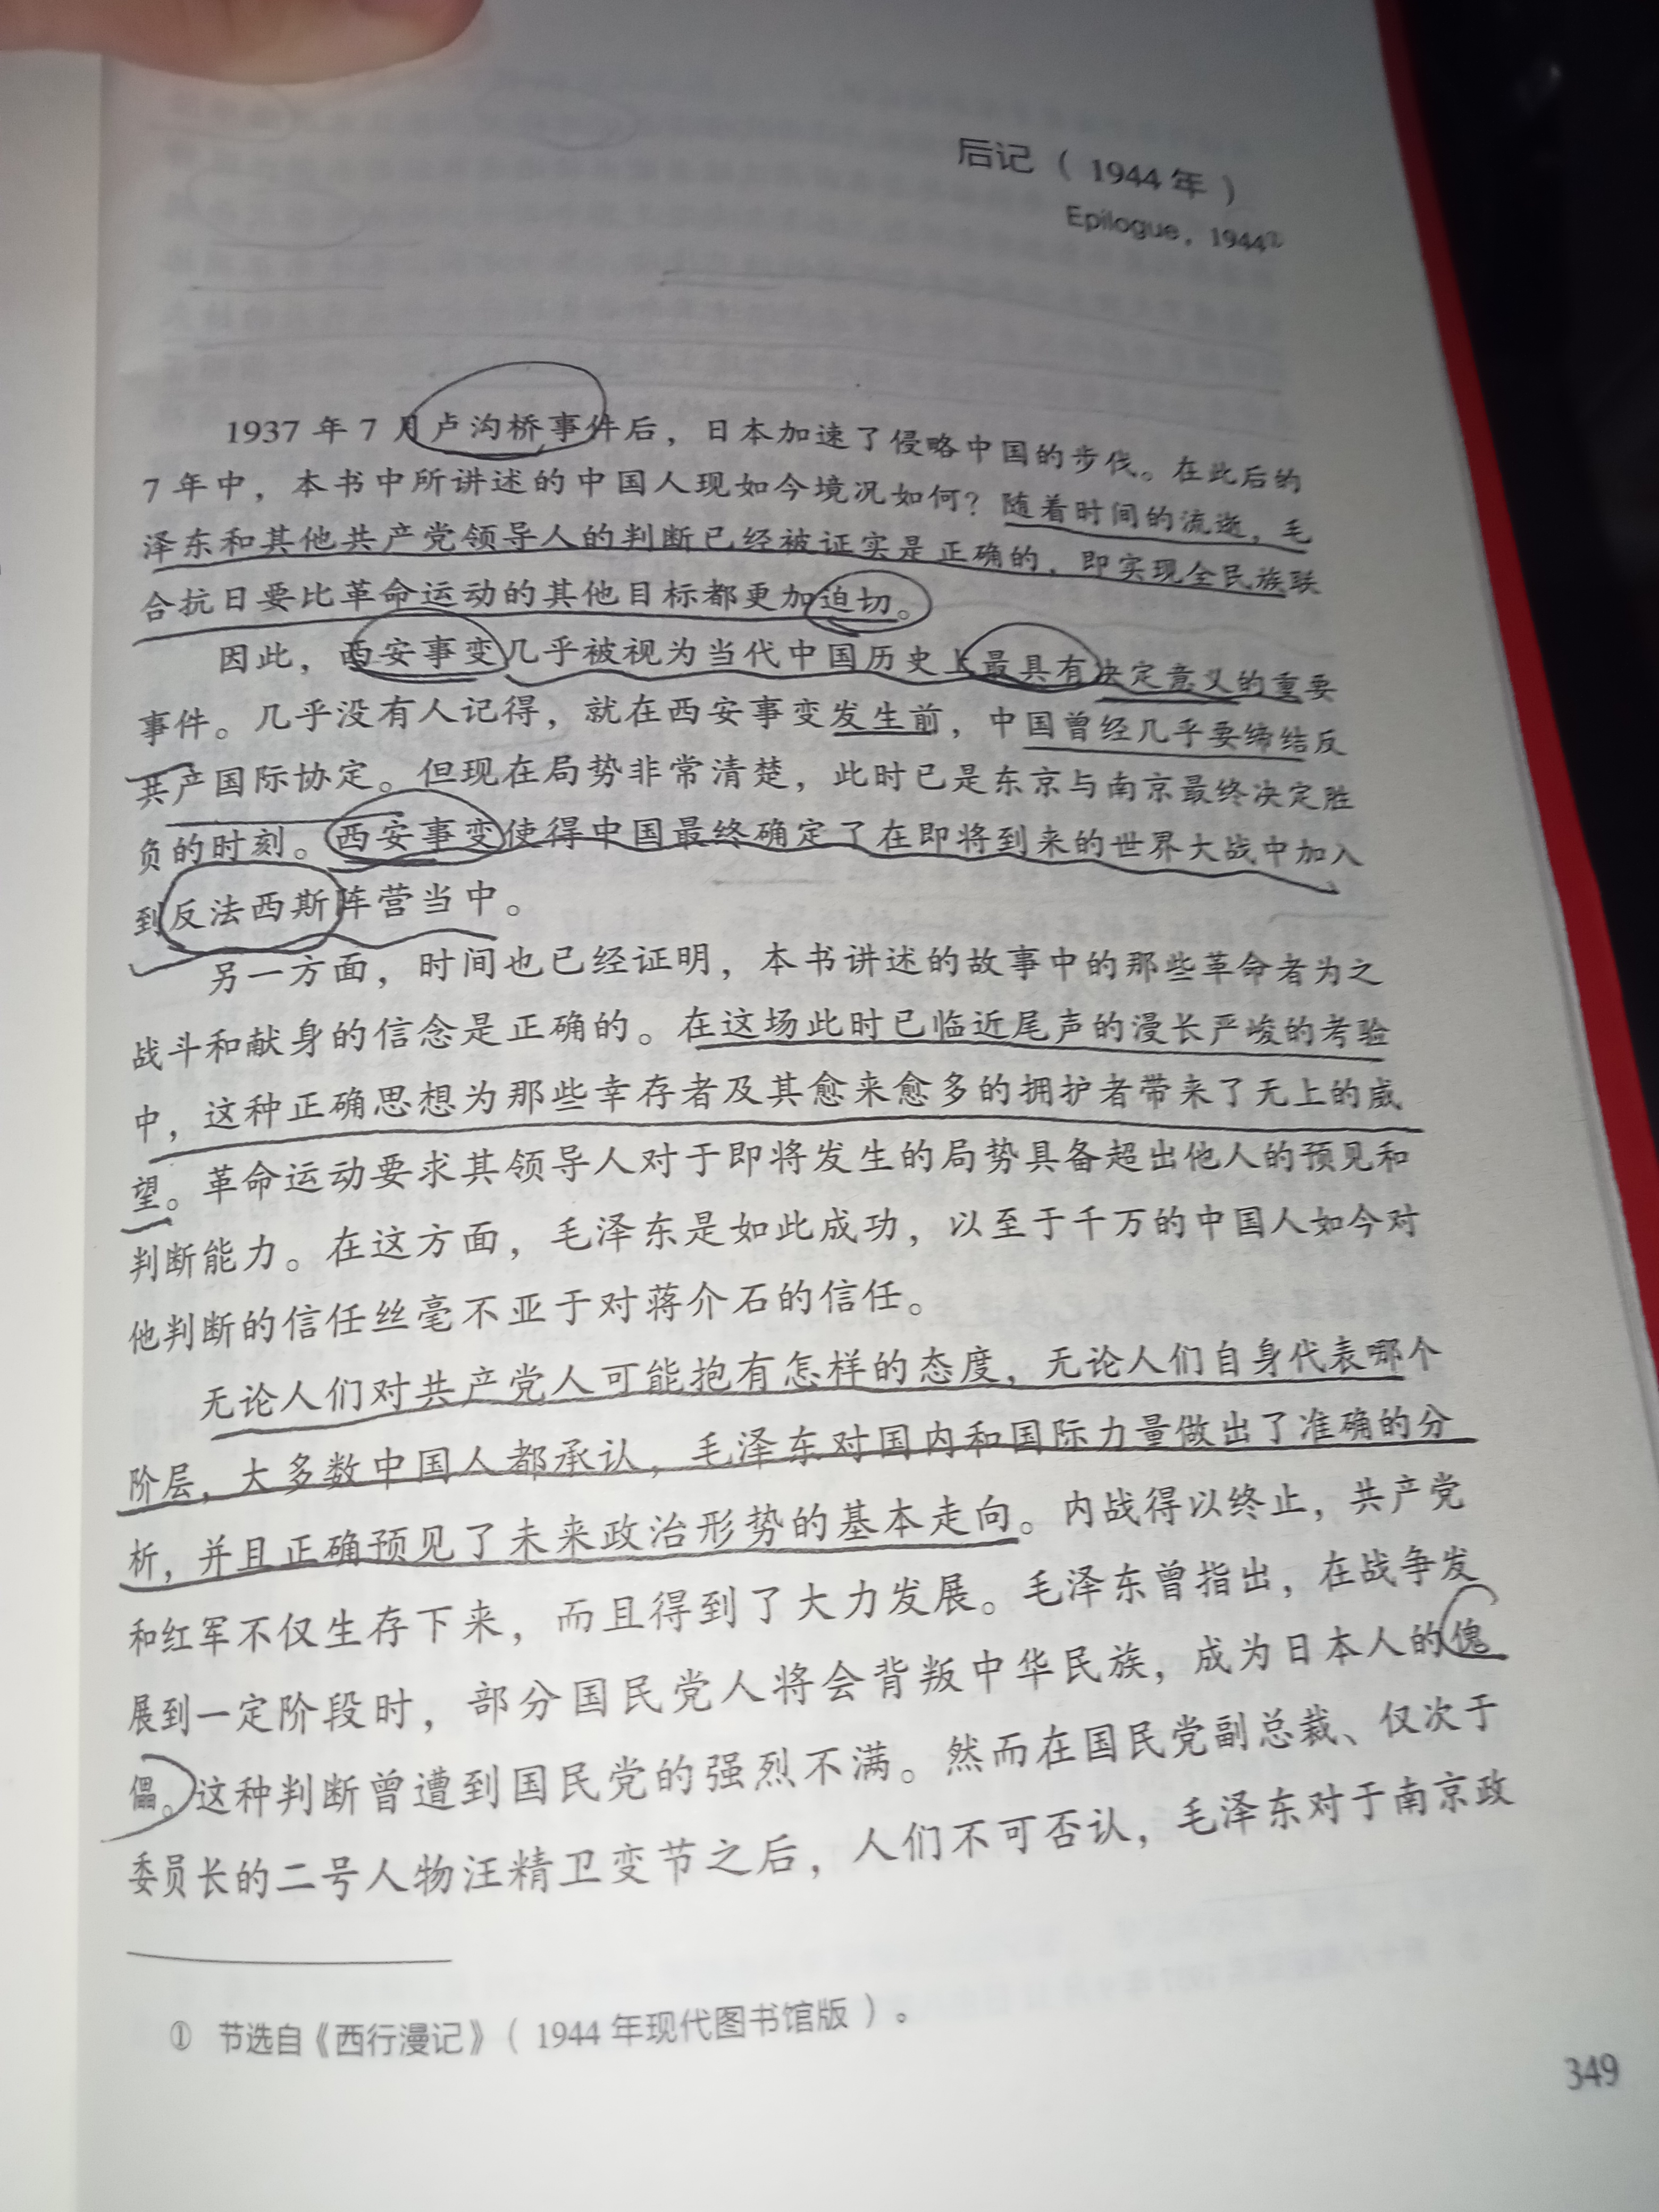 后记（1944年）
Epilogue，1944①
1937年7月卢沟桥事件后，日本加速了侵略中国的步伐。在此后的
7年中，本书中所讲述的中国人现如今境况如何？随着时间的流逝，毛
泽东和其他共产党领导人的判断已经被证实是正确的，即实现全民族联
合抗日要比革命运动的其他目标都更加迫切。
因此，西安事变几乎被视为当代中国历史上最具有决定意义的重要
事件。几乎没有人记得，就在西安事变发生前，中国曾经几乎要缔结反
共产国际协定。但现在局势非常清楚，此时已是东京与南京最终决定胜
负的时刻。西安事变使得中国最终确定了在即将到来的世界大战中加入
到反法西斯阵营当中。
另一方面，时间也已经证明，本书讲述的故事中的那些革命者为之
战斗和献身的信念是正确的。在这场此时已临近尾声的漫长严峻的考验
中，这种正确思想为那些幸存者及其愈来愈多的拥护者带来了无上的威
望。革命运动要求其领导人对于即将发生的局势具备超出他人的预见和
判断能力。在这方面，毛泽东是如此成功，以至于千万的中国人如今对
他判断的信任丝毫不亚于对蒋介石的信任。
无论人们对共产党人可能抱有怎样的态度，无论人们自身代表哪个
阶层，大多数中国人都承认，毛泽东对国内和国际力量做出了准确的分
析，并且正确预见了未来政治形势的基本走向。内战得以终止，共产党
和红军不仅生存下来，而且得到了大力发展。毛泽东曾指出，在战争发
展到一定阶段时，部分国民党人将会背叛中华民族，成为日本人的傀
儡。这种判断曾遭到国民党的强烈不满。然而在国民党副总裁、仅次于
委员长的二号人物汪精卫变节之后，人们不可否认，毛泽东对于南京政
① 节选自《西行漫记》（1944年现代图书馆版）。
349